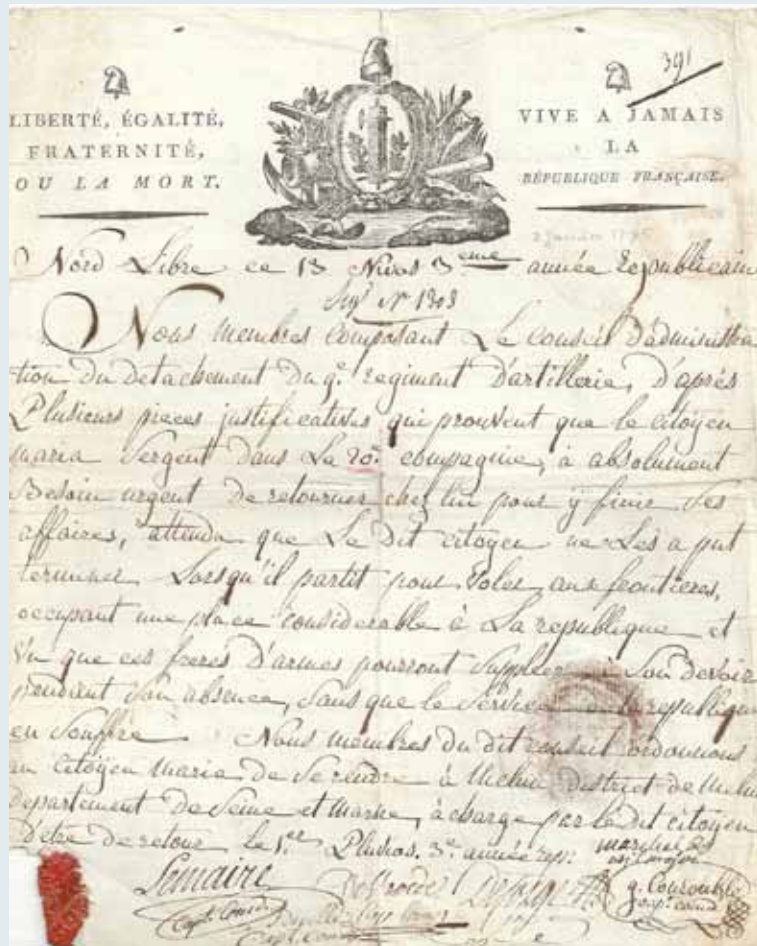 391
LIBERTÉ, ÉGALITÉ,
FRATERNITÉ,
OU LA MORT.
VIVE A JAMAIS
LA
RÉPUBLIQUE FRANÇAISE.
2 janvier 1795
Nord Libre ce 13 Nivos 3eme année republicain
Nº 1303
Nous membres composant Le conseil D'administra
tion du detachement du 9e. regiment D'artillerie, D'après
Plusieurs pieces justificatives qui prouvent que le citoyen
maria Sergent dans La 20e compagnie, à absolument
Besoin urgent de retourner chez lui pour ÿ finir ses
affaires, attendu que Le Dit citoyen ne Les a put
terminer Lorsqu'il partit pour voler aux frontieres,
occupant une place considerable à La republique et
Vu que ces freres D'armes pourront Suppleer à Son devoir
pendant Son absence, Sans que le Service de la republique
en Souffre Nous membres du dit conseil ordonnons
au Citoÿen marie de Se rendre à Melun district de Melun
Departement De Seine et marne, à charge par le dit citoyen
D'etre de retour le 1.er Pluvios. 3e. année rep.
Lemaire
g. Courouble